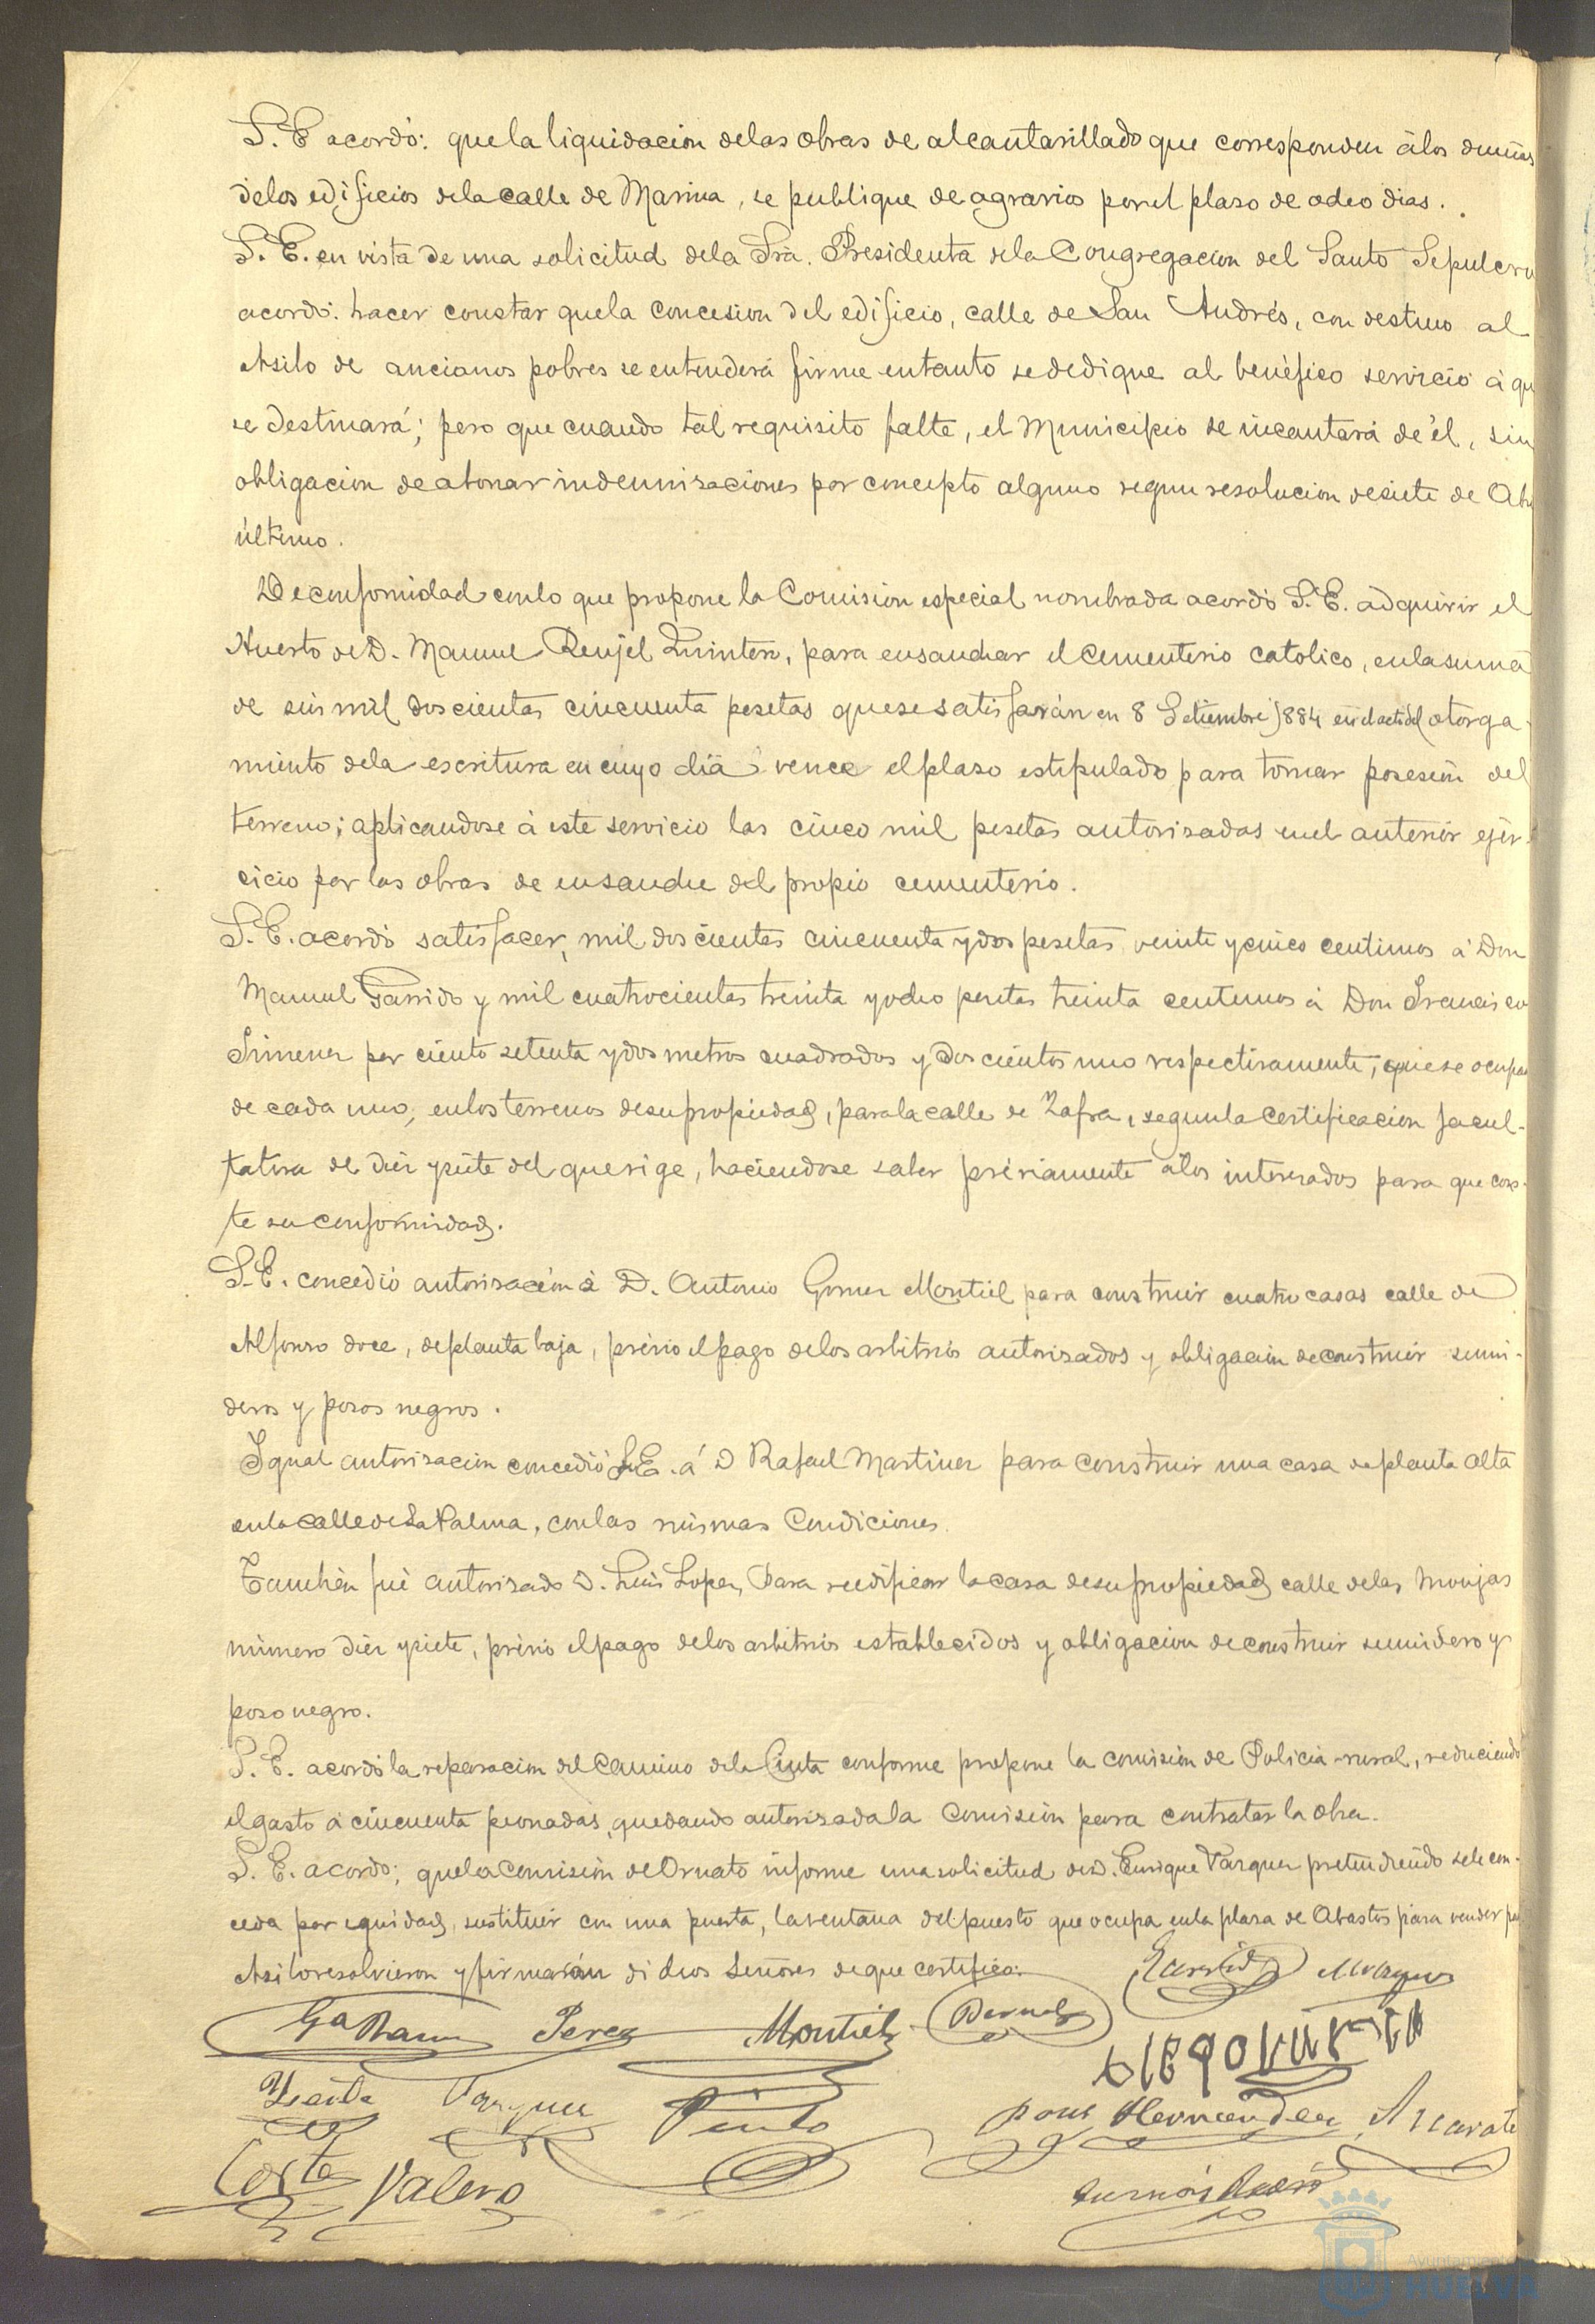 S. E. acordó: que la liquidacion delas obras de alcantarillado que corresponden álos dueños
delos edificios dela calle de Marina, se publique de agravios por el plaso de ocho dias.
S. E. en vista de una solicitud dela Sra. Presidenta dela Congregacion del Santo Sepulcro
acordó: hacer constar que la concesion del edificio, calle de San Andrés, con destino al
Asilo de ancianos pobres se entenderá firme en tanto se dedique al benéfico servicio á qu
se destinará; pero que cuando tal requisito falte, el Municipio se incautará de él, sin
obligacion de abonar indemnisaciones por concepto alguno segun resolucion de siete de Ab
último.
De conformidad con lo que propone la Comision especial nombrada acordó S. E. adquirir el
Huerto de D. Manuel Renjel Quintero, para ensanchar el cementerio catolico, en la suma
de seis mil doscientas cincuenta pesetas que se satisfarán en 8 Setiembre 1884 en el acto del otorga-
miento dela escritura en cuyo dia vence el plaso estipulado para tomar posesion del
terreno; aplicandose á este servicio las cinco mil pesetas autorisadas en el anterior ejer-
cicio por las obras de ensanche del propio cementerio.
S. E. acordó satisfacer, mil doscientas cincuenta y dos pesetas veinte y cinco centimos á Don
Manuel Garrido y mil cuatrocientas treinta y ocho pesetas treinta centimos á Don Francisco
Jimenez por ciento setenta y dos metros cuadrados y doscientos uno respectivamente, que se ocupan
de cada uno, en los terrenos de su propiedad, para la calle de Zafra, segun la certificacion facul-
tativa de diez y siete del que rige, haciendose saber préviamente álos interesados para que cons-
te su conformidad.
S. E. concedió autorisacion á D. Antonio Gomez Montiel para construir cuatro casas calle de
Alfonso doce, de planta baja, prévio el pago delos arbitrios autorisados y obligacion de construir sumi-
deros y posos negros.
Igual autorisacion concedió S. E. á D Rafael Martinez para construir una casa de planta alta
en la calle de La Palma, con las mismas condiciones.
Tambien fué autorisado D. Luis Lopez, para reedificar la casa de su propiedad calle delas Monjas
número diez y siete, prévio el pago delos arbitrios establecidos y obligacion de construir sumidero y
poso negro.
S. E. acordó la reparacion del camino dela Cinta conforme propone la comision de Policia rural, reduciendo
el gasto á cincuenta peonadas, quedando autorisada la comision para contratar la obra.
S. E. acordó; que la Comision de Ornato informe una solicitud de D. Enrique Vazquez pretendiendo se le con-
ceda por equidad, sustituir con una puerta, la ventana del puesto que ocupa en la plaza de Abastos para vender pa
Asi lo resolvieron y firmarán dichos Señores de que certifico.
Garrido
Gª Ramos Perez Montiel Bernal
Vazquez Pinto
Pons Hernandez Azcarate
Corte Valero
Ayuntamiento
HUELVA